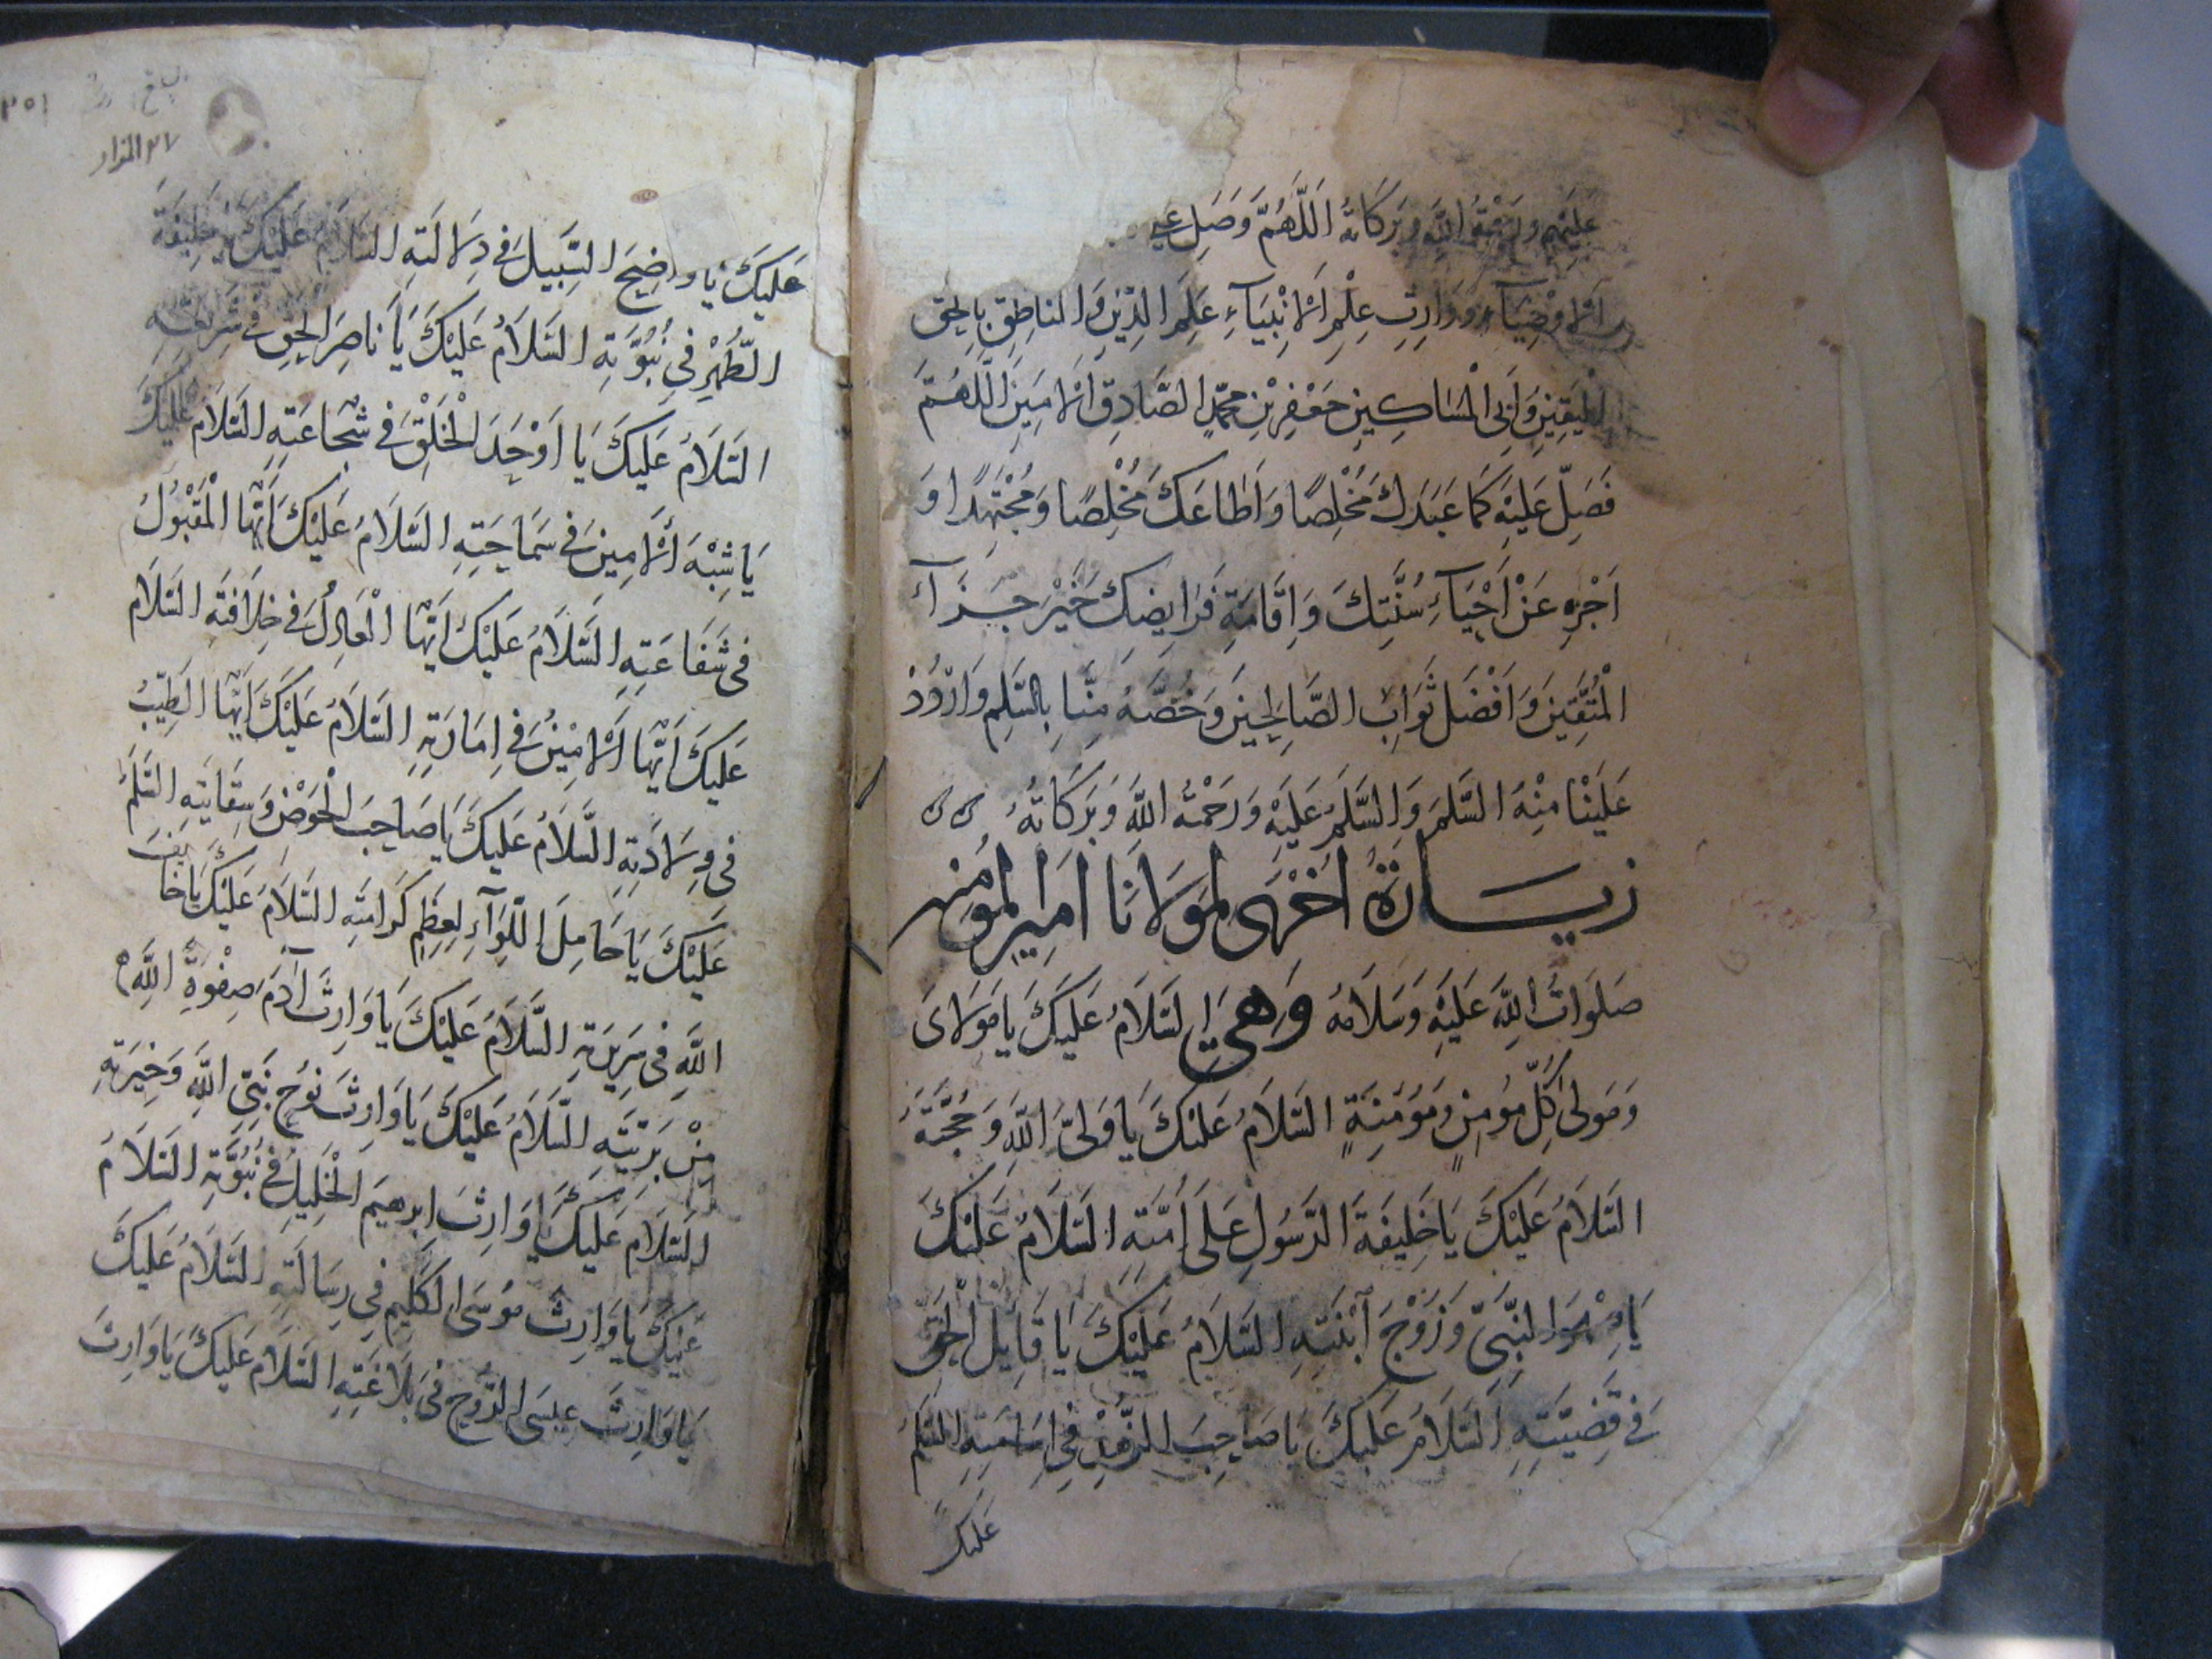 عَلَيْهِم وَرَحْمَةُ اللَّهِ وَبَرَكَاتُهُ اَللَّهُمَّ وَصَلِّ عَلَى
الأَوْصِيَاءِ وَوَارِثِ عِلْمِ الأَنْبِيَآءِ عَلَمِ الدِّيْنِ وَالنَاطِقِ بِالْحَقِ
الْيَقِيْنِ وَاَبِي الْمَسَاكِينِ جَعْفِرْبْنِ مُحَمَّدٍ الصَّادِقِ اَلْاَمِيْنِ اَللَّهُمَّ
فَصَلِّ عَلَيْهِ كَمَا عَبَدَكَ مُخْلِصًا وَاَطَاعَكَ مُخْلِصًا وَمُجْتَهِدًا وَ
اَجْزِهِ عَنْ اَحْيَآءِ سُنَّتِكَ وَاِقَامَةِ فَرَايِضِكَ خَيْرَ جَزَآءِ
الْمُتَّقِيْنَ وَاَفْضَلَ ثَوَابِ الصَّالِحِيْنَ وَخُصَّهُ مِنَّا بِالسَّلمِ وَارْدُدْ
عَلَيْنَا مِنْهُ السَّلمَ وَالسَّلمُ عَلَيْهِ وَرَحْمَةُ اللَّهِ وَبَرَكَاتُهُ
زيَارَةٌ اُخْرَى لِمَوْلَانَا اَمِيرِ الْمُؤمِنِينَ
صَلَوَاتُ اللَّهِ عَلَيْهِ وَسَلَامُهُ وَهِيَ السَّلَامُ عَلَيْكَ يَا مَوْلَايَ
وَمَوْلىٰ كُلِّ مُؤمِنٍ وَمُؤمِنَةٍ السَّلَامُ عَلَيْكَ يَا وَلِيَّ اللَّهِ وَحُجَّتَهُ
السَّلَامُ عَلَيْكَ يَا خَلِيفَةَ الرَّسُولِ عَلَى اُمَّتِهِ السَّلَامُ عَلَيْكَ
يَا صِهْرَ النَّبِيِّ وَزَوْجَ اَبْنَتِهِ السَّلَامُ عَلَيْكَ يَا قَايِلَ الْحَقِّ
فِي قَضِيَّتِهِ السَّلَامُ عَلَيْكَ يَا صَاحِبَ الزُّهْدِ فِي اِمَامَتِهِ السَّلَمُ
عَلَيْكَ
٢٥١
٢٧ المزار
عَلَيْكَ يَا وَاضِحَ السَّبِيلِ فِي دِلَالَتِهِ السَّلَامُ عَلَيْكَ يَا خَلِيفَةَ
الطُّهْرِ فِي نُبُوَّتِهِ السَّلَامُ عَلَيْكَ يَا نَاصِرَ الْحَقِّ فِي شَرِيعَتِهِ
السَّلَامُ عَلَيْكَ يَا اَوْحَدَ الْخَلْقِ فِي شَجَاعَتِهِ السَّلَامُ عَلَيْكَ
يَا شِبْهَ اَلْاَمِينِ فِي سَمَاحَتِهِ السَّلَامُ عَلَيْكَ اَيُّهَا الْمَقْبُولُ
فِي شَفَاعَتِهِ السَّلَامُ عَلَيْكَ اَيُّهَا الْعَادِلُ فِي خِلَافَتِه السَّلَامُ
عَلَيْكَ اَيُّهَا اَلْاَمِيْنُ فِي اِمَارَتِهِ السَّلَامُ عَلَيْكَ اَيُّهَا الطَيِّبُ
فِي وِلَادَتِهِ السَّلَامُ عَلَيْكَ يَا صَاحِبَ الْحَوْضِ وَسِقَايَتِهِ السَّلَمُ
عَلَيْكَ يَا حَامِلَ اللِّوَآءِ لِعِظَمِ كَرَامَتِهِ السَّلَامُ عَلَيْكَ يَا خَايِفَ
اللَّهِ فِي سَرِيرَتِهِ السَّلَامُ عَلَيْكَ يَا وَارِثَ اٰدَمَ صِفْوَةِ اللَّهِ
مِنْ بَرِيَّتِهِ السَّلَامُ عَلَيْكَ يَا وَارِثَ نُوحٍ نَبِيِّ اللَّهِ وَخِيَرَتِهِ
السَّلَامُ عَلَيْكَ يَا وَارِثَ اِبرهيم الْخَلِيلِ فِي نُبُوَّتِهِ السَّلَامُ
عَلَيْكَ يَا وَارِثَ مُوسَى الكَلِيمِ فِي رِسَالَتِهِ السَّلَامُ عَلَيْكَ
يَا وَارِثَ عِيسَى الرُّوحِ فِي بَلَاغَتِهِ السَّلَامُ عَلَيْكَ يَا وَارِثَ